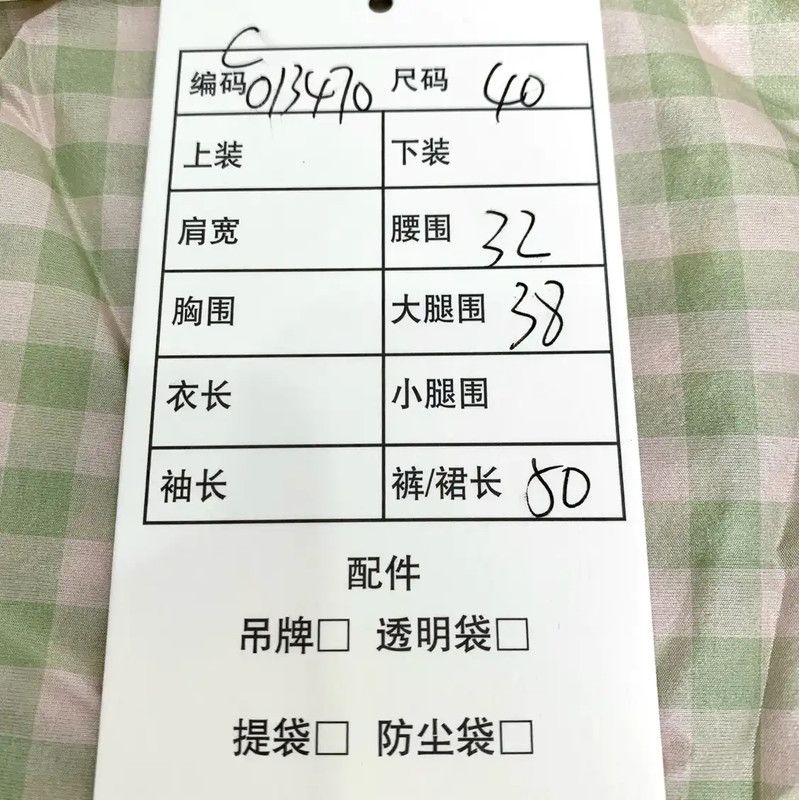 编码 C013470 尺码 40
上装 下装
肩宽 腰围 32
胸围 大腿围 38
衣长 小腿围
袖长 裤/裙长 50
配件
吊牌□ 透明袋□
提袋□ 防尘袋□